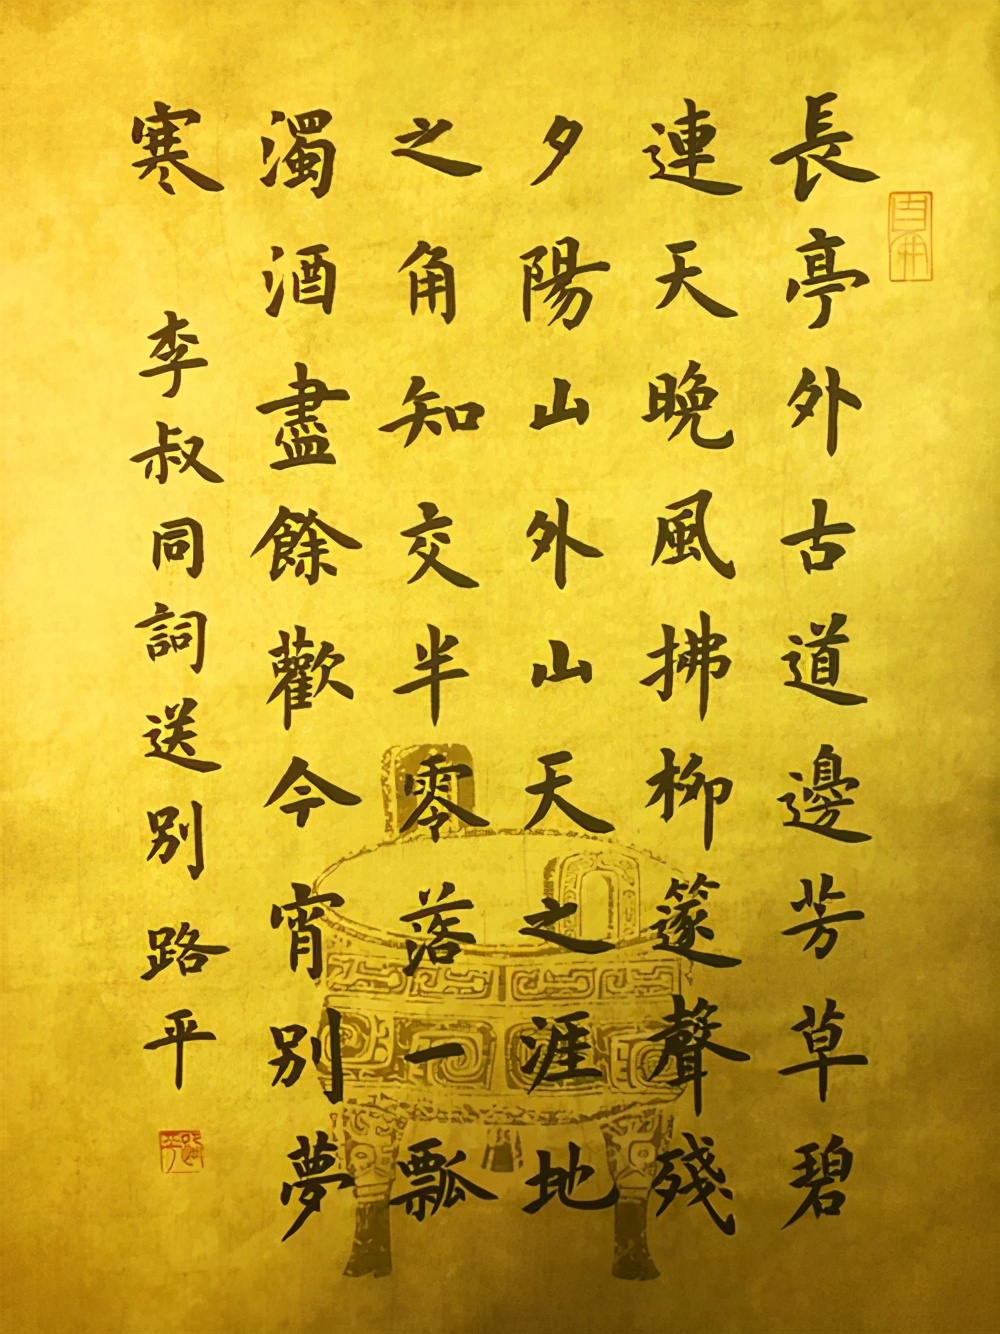 長亭外古道邊芳草碧
連天晚風拂柳篴聲殘
夕陽山外山天之涯地
之角知交半零落一瓢
濁酒盡餘歡今宵別夢
寒 李叔同詞送別 路平
路平